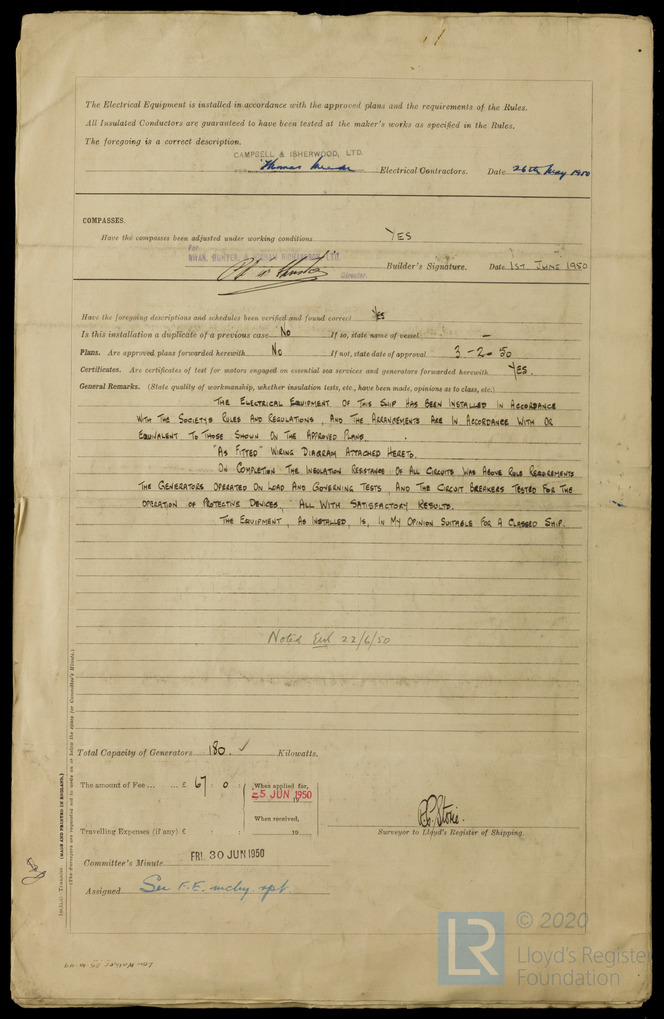 The Electrical Equipment is installed in accordance with the approved plans and the requirements of the Rules.
All Insulated Conductors are guaranteed to have been tested at the maker's works as specified in the Rules.
The foregoing is a correct description.
CAMPBELL & ISHERWOOD, LTD.
Thomas Electrical Contractors. Date 26th May 1950
COMPASSES.
Have the compasses been adjusted under working conditions YES
For
SWAN, HUNTER, & WIGHAM RICHARDSON, LTD.
Builder's Signature. Date 1ST JUNE 1950
Director.
Have the foregoing descriptions and schedules been verified and found correct YES
Is this installation a duplicate of a previous case No If so, state name of vessel —
Plans. Are approved plans forwarded herewith No If not, state date of approval 3-2-50
Certificates. Are certificates of test for motors engaged on essential sea services and generators forwarded herewith YES.
General Remarks. (State quality of workmanship, whether insulation tests, etc., have been made, opinions as to class, etc.)
THE ELECTRICAL EQUIPMENT OF THIS SHIP HAS BEEN INSTALLED IN ACCORDANCE
WITH THE SOCIETY'S RULES AND REGULATIONS, AND THE ARRANGEMENTS ARE IN ACCORDANCE WITH OR
EQUIVALENT TO THOSE SHOWN ON THE APPROVED PLANS.
"AS FITTED" WIRING DIAGRAM ATTACHED HERETO.
ON COMPLETION THE INSULATION RESISTANCE OF ALL CIRCUITS WAS ABOVE RULE REQUIREMENTS
THE GENERATORS OPERATED ON LOAD AND GOVERNING TESTS, AND THE CIRCUIT BREAKERS TESTED FOR THE
OPERATION OF PROTECTIVE DEVICES, ALL WITH SATISFACTORY RESULTS.
THE EQUIPMENT, AS INSTALLED, IS, IN MY OPINION SUITABLE FOR A CLASSED SHIP.
Noted 22/6/50
Total Capacity of Generators 180 ✓ Kilowatts.
The amount of Fee ... ... £ 67 : 0 :
When applied for,
25 JUN 1950
19
When received,
Travelling Expenses (if any) £ : :
19
R.C. Stone.
Surveyor to Lloyd's Register of Shipping.
Committee's Minute FRI. 30 JUN 1950
Assigned See F.E. mchy. rpt.
(MADE AND PRINTED IN ENGLAND.)
(The Surveyors are requested not to write on or below the space for Committee's Minute.)
LR
© 2020
Lloyd's Register
Foundation